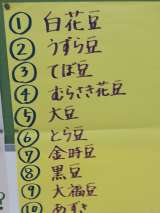 ① 白花豆
② うずら豆
③ てぼ豆
④ むらさき花豆
⑤ 大豆
⑥ とら豆
⑦ 金時豆
⑧ 黒豆
⑨ 大福豆
⑩ あずき